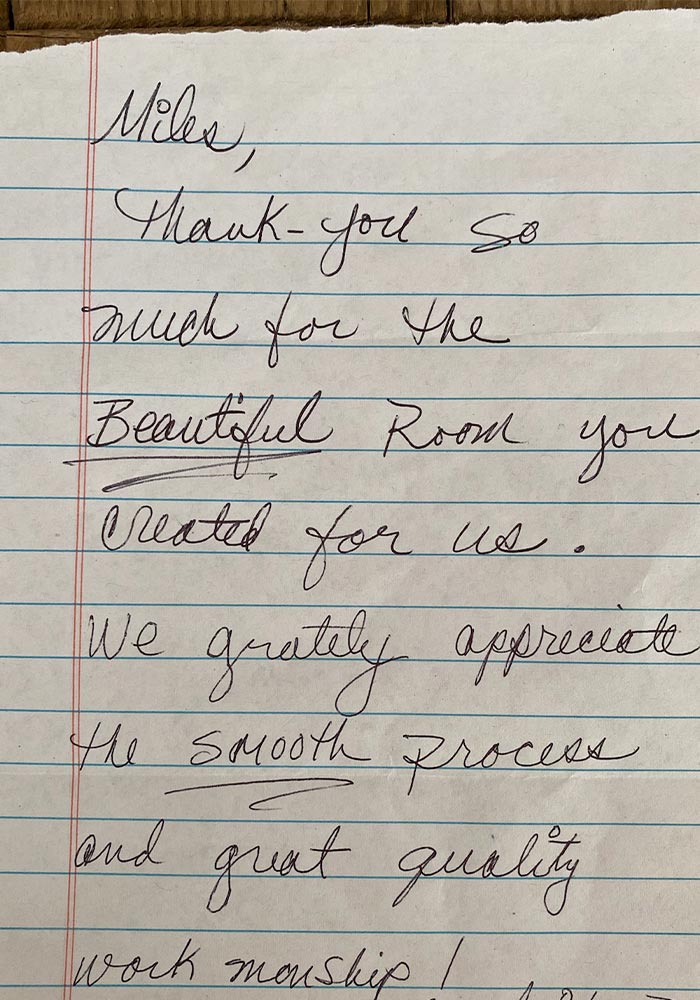 Miles,
Thank-you so
much for the
Beautiful Room you
created for us.
We grately appreciate
the smooth process
and great quality
work monship!